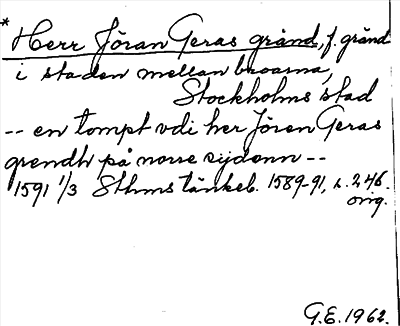 * Herr Jöran Geras gränd, f. gränd
i staden mellan broarna,
Stockholms stad
-- en tompt vdi her Jören Geras
grendh på norre sijdenn --
1591 1/3 Sthms tänkeb. 1589-91, s. 246.
orig.
G.E. 1962.